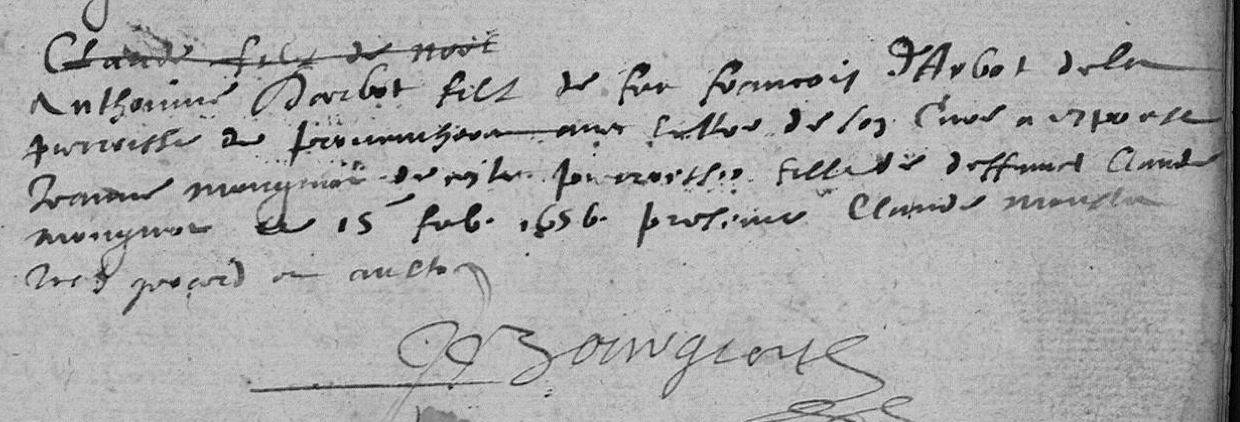 Claude filz de noel
Anthoinne Darbot filz de feu francois d'Arbot de la
parroisse de avec lettre de son Curé a espouse
Jeanne mongnot de ceste parroisse fille de deffunct Claude
mongnot le 15 feb. 1656. presens Claude
et
Bourgeois